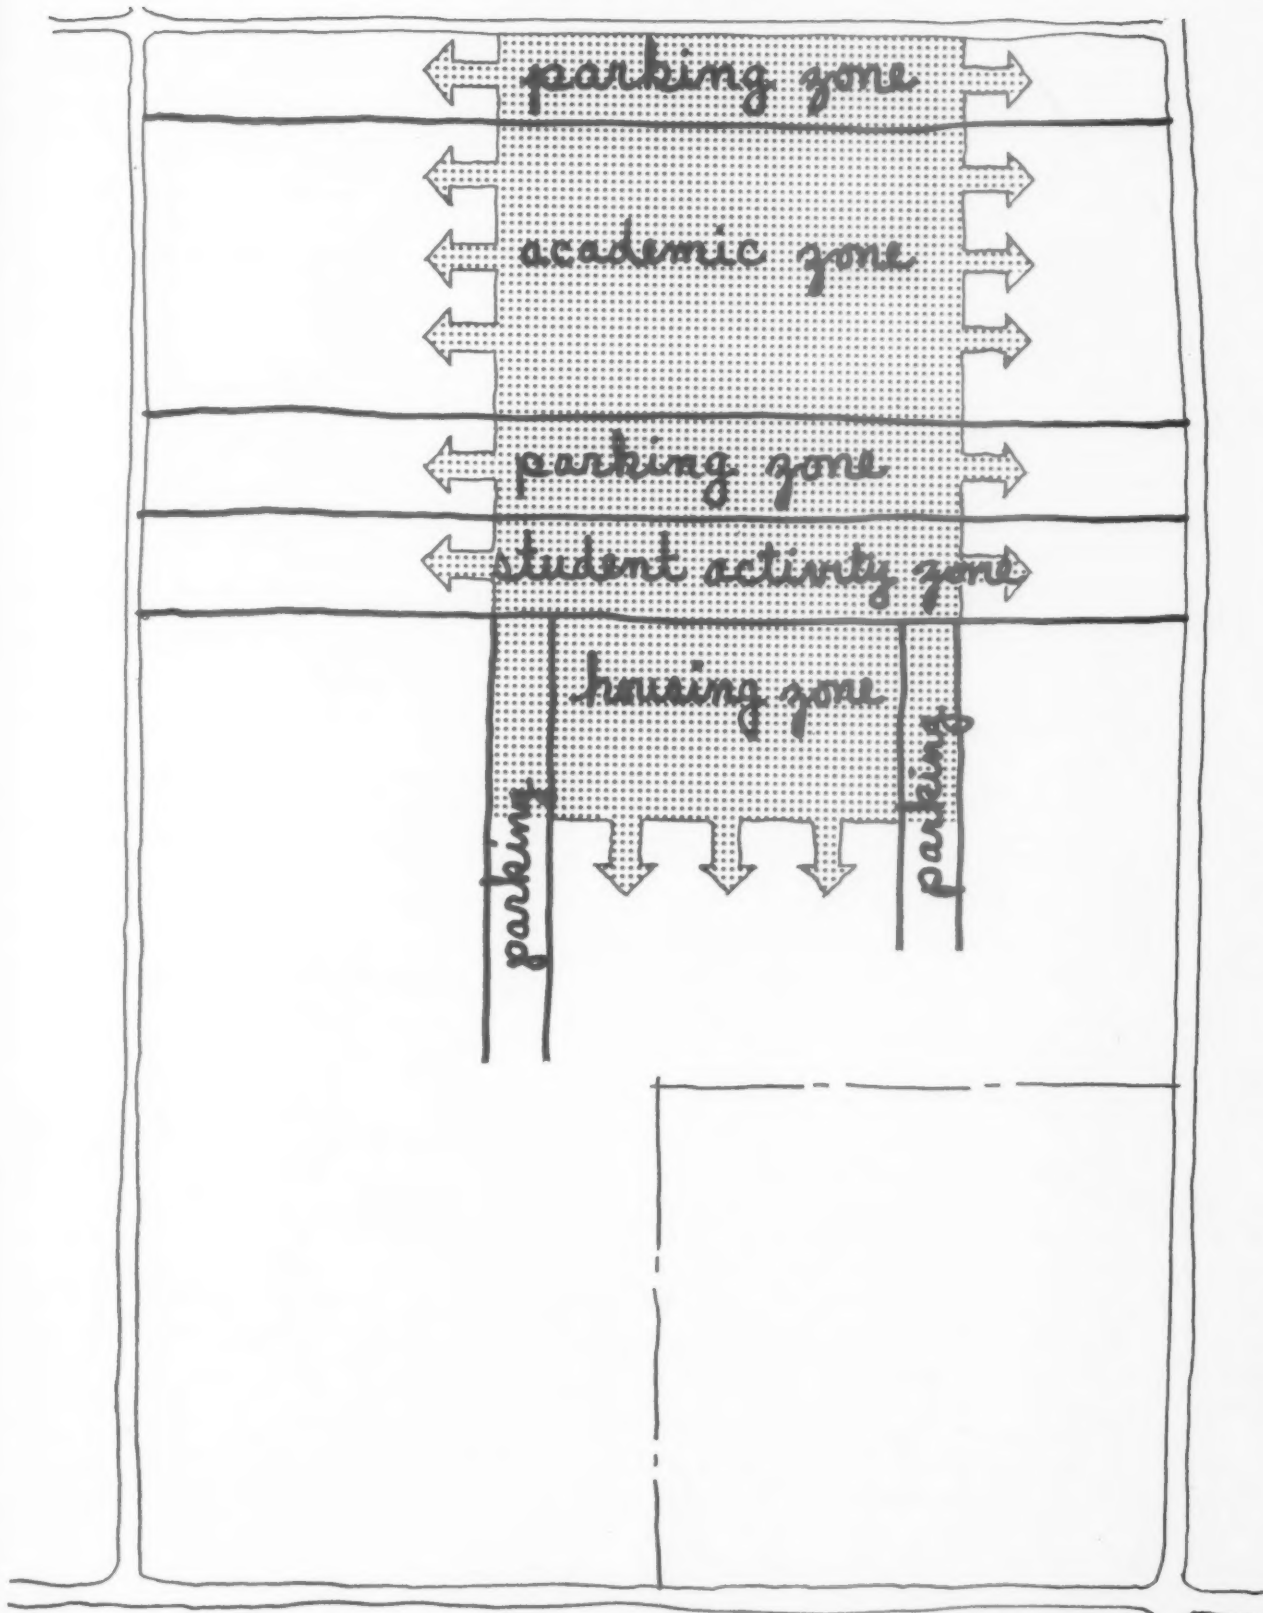 parking zone
academic zone
parking zone
student activity zone
housing zone
parking
parking